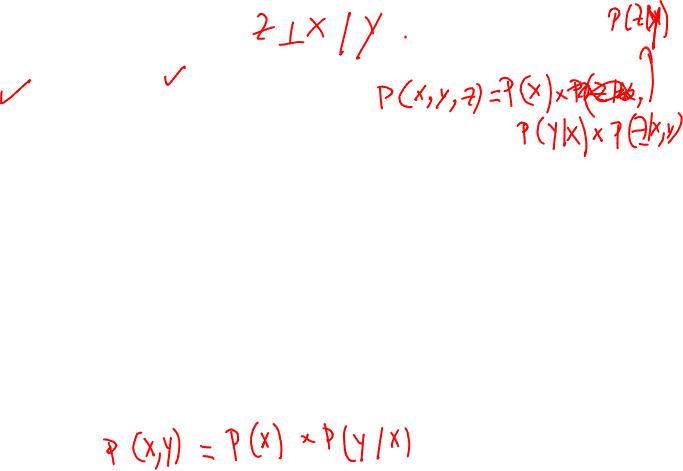 P(Z|Y)
Z⊥X/Y.
P(X,Y,Z)=P(X)×
P(Y|X)×P(Z|X,Y)
P(X,Y) = P(X) × P(Y/X)